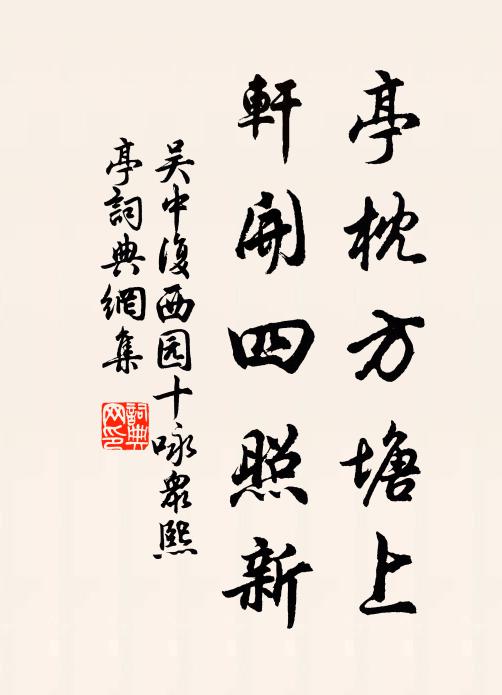 亭枕方塘上
軒開四照新
吴中復西园十咏衆熙
亭詞典網集
詞典
网印